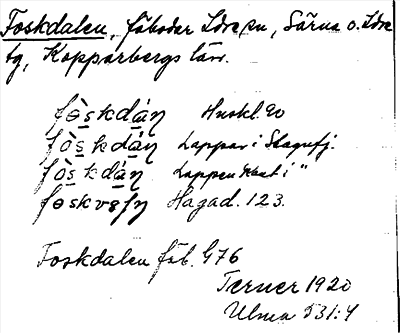 Foskdalen, fäbodar Idre sn, Särna o. Idre
tg, Kopparbergs län.
fɵ̀skdáṇ Huskl. 20
fɵ̀skdáṇ Lappar i Stagufj.
fɵ̀skdáṇ Lappen Kant i "
føskvɐʃŋ Hagad. 123.
Foskdalen fäb. G76
Terner 1920
Ulma 531:4